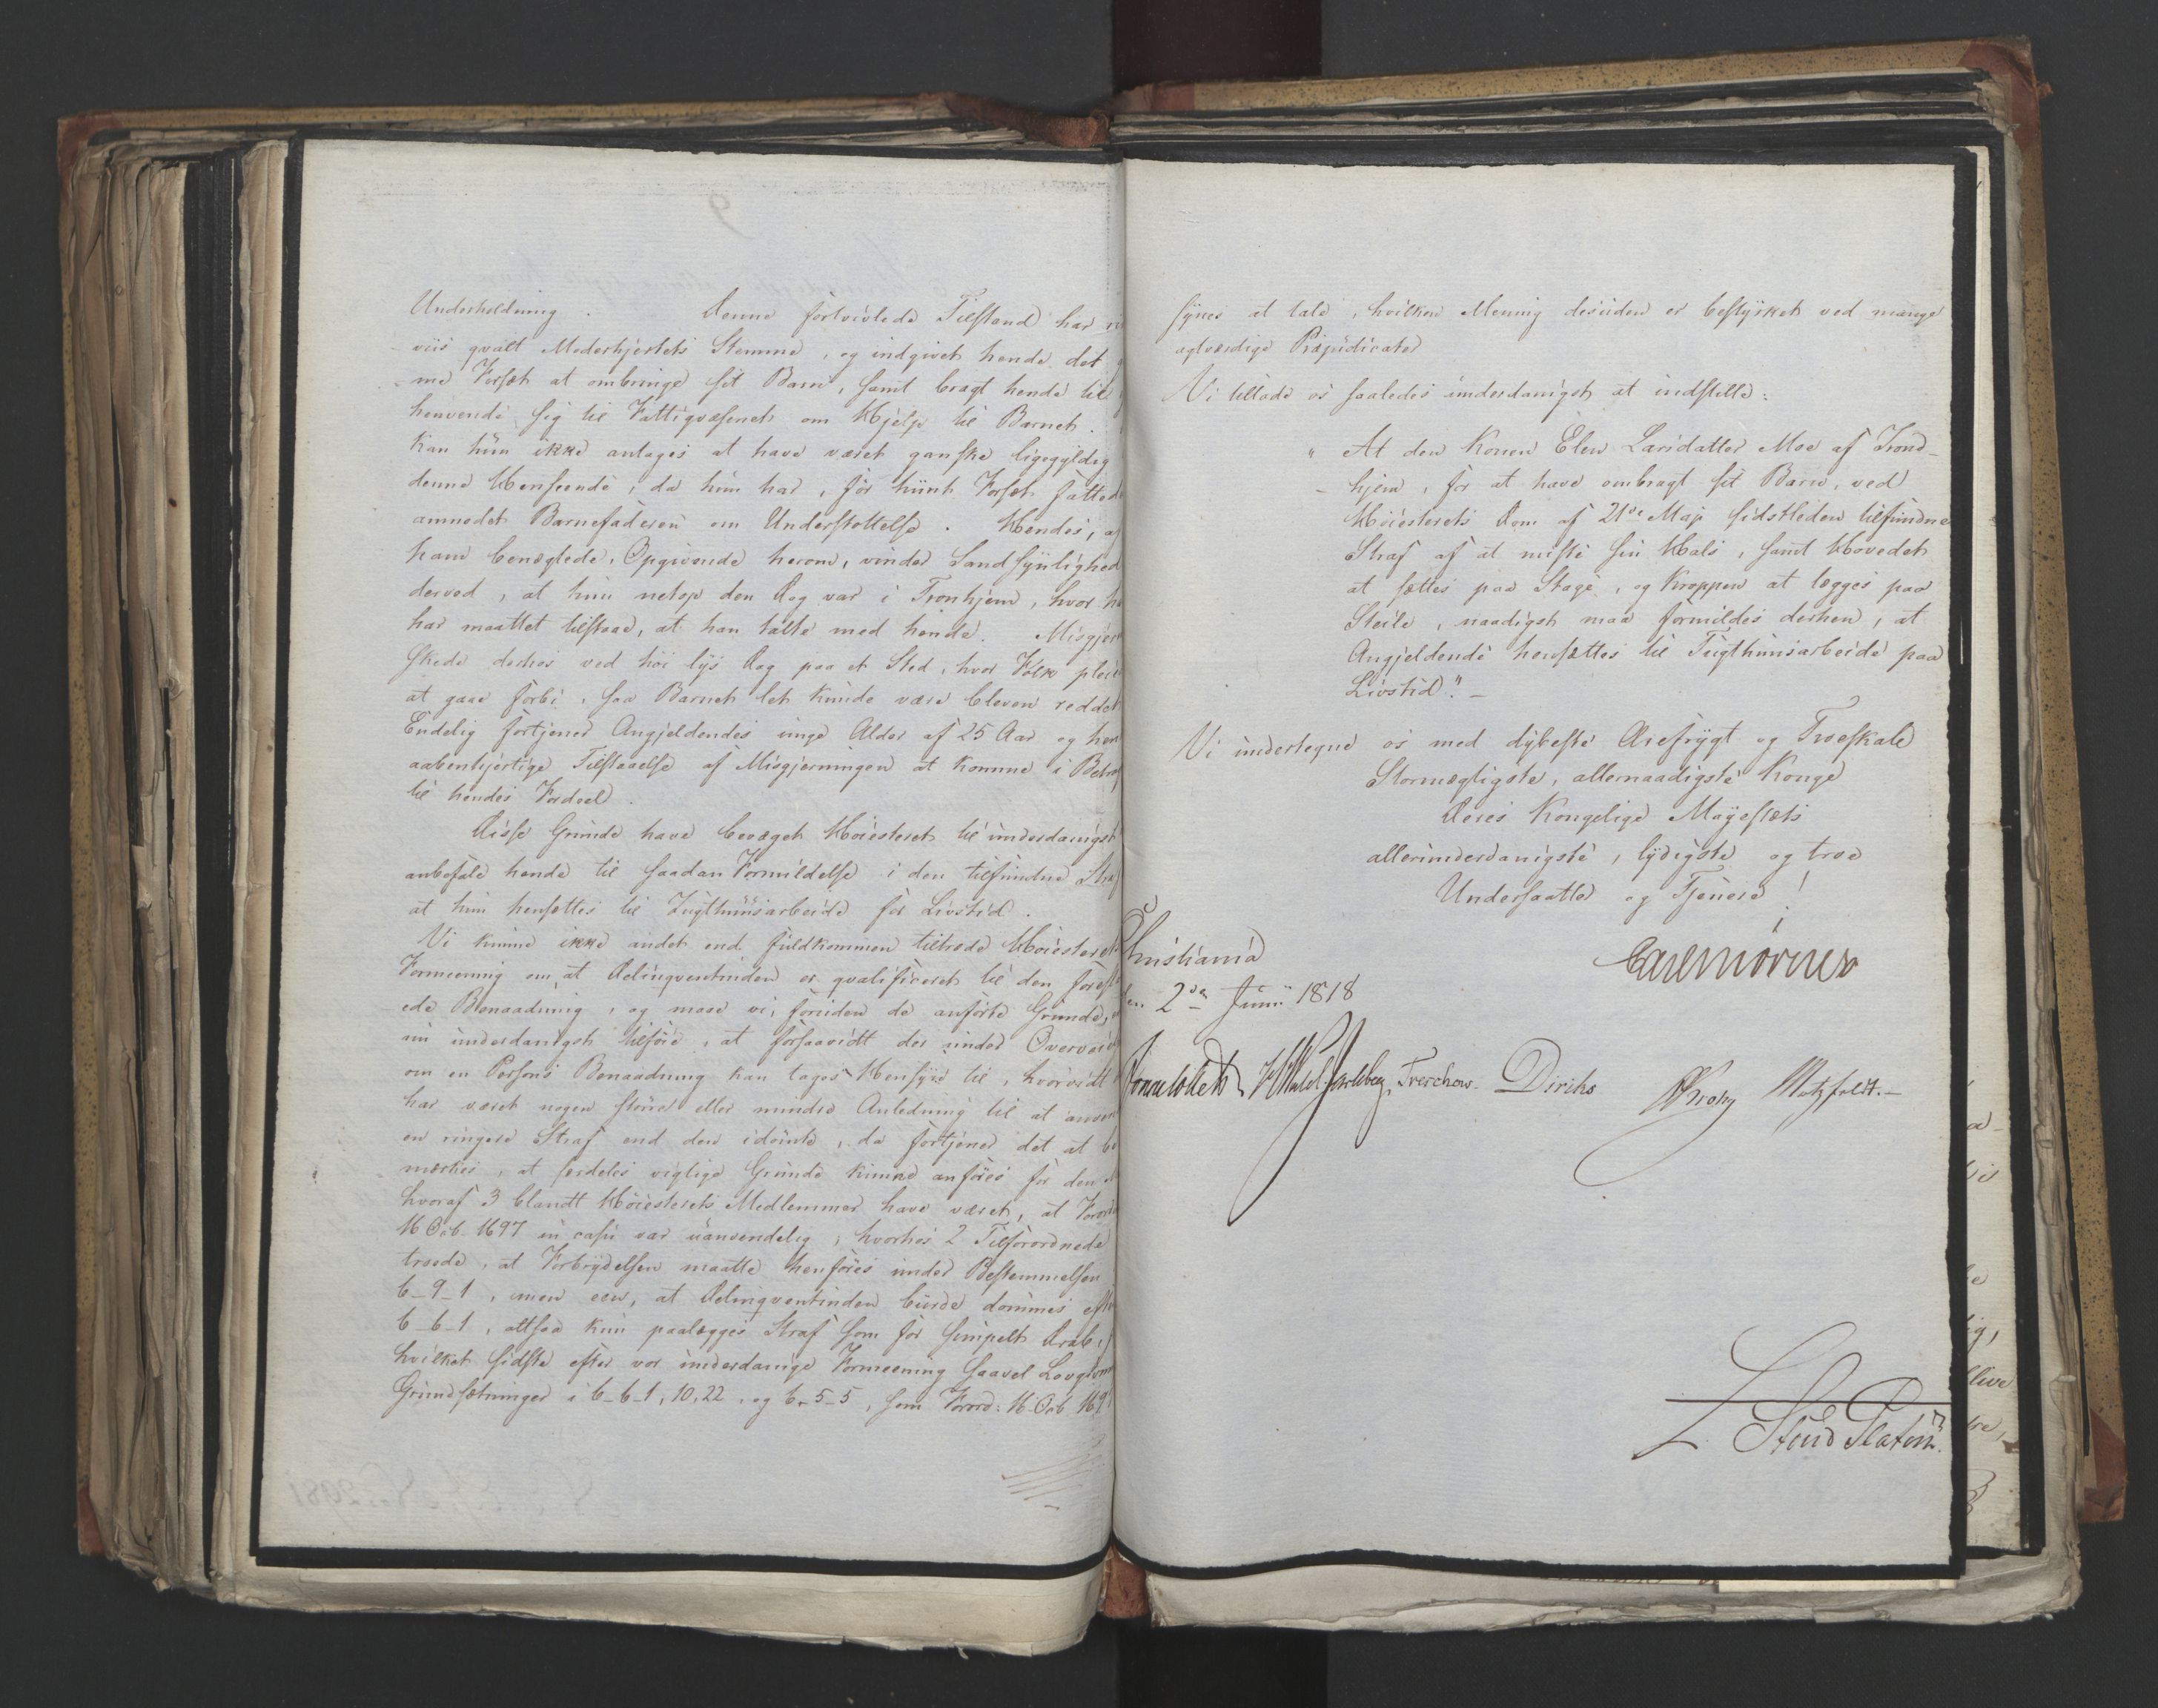 Underholdning. Denne fortvivlede Tilstand har
viis qvalt Moderhjertets Stemme, og indgivet hende det
me Forsæt at ombringe sit Barn, samt bragt hende til
henvende sig til Fattigvæsenet om Hjelp til Barnet.
Kan hun ikke antages at have været ganske ligegyldig
denne Henseende, da hun har, før hiint Forsæt fattede
anmodet Barnefaderen om Understøttelse. Hendes, af
ham benægtede, Opgivende herom, vinder Sandsynlighed
derved, at hun netop den Dag var i Tronhjem, hvor
har maattet tilstaae, at han talte med hende. Misgjer
skede derhos ved høi lys Dag paa et Sted, hvor Folk pleie
at gaae forbi, saa Barnet let kunde være bleven reddet
Endelig fortjener Angjeldendes unge Alder af 25 Aar og
aabenhjertige Tilstaaelse af Misgjerningen at komme i Betra
til hendes Fordeel.
Disse Grunde have bevæget Høiesteret til underdanigst
anbefale hende til saadan Formildelse i den tilfundne Straf
at hun hensættes til Tugthuusarbeide for Livstid.
Vi kunne ikke andet end fuldkommen tiltræde Høiesterets
Formeening om, at Delinqventinden er qvalificeret til den
ede Benaadning, og maae vi, foruden de anførte Grunde,
nu underdanigst tilføie, at forsaavidt der under Overvei
om en Persons Benaadning kan tages Hensyn til, hvorvidt
har været nogen større eller mindre Anledning til at
en ringere Straf end den idømte, da fortjener det at be
mærkes, at særdeles vigtige Grunde kunne anføres for den
hvoraf 3 blandt Høiesterets Medlemmer have været, at
16 Oct. 1697 in casu var uanvendelig, hvorhos 2 Tilforordnede
troede, at Forbrydelsen maatte henføres under Bestemmelsen
6-9-1, men een, at Delinqventinden burde dømmes efter
6-6-1, altsaa kun paalægges Straf som for simpelt Drab,
hvilket sidste efter vor underdanige Formeening saavel
Grundsætninger i 6-6-1, 10, 22, og 6-5-5, som Forord: 16 Oct 169
synes at tale, hvilken Mening desuden er bestyrket ved mange
agtværdige Præjudicater
Vi tillade os saaledes underdanigst at indstille:
"At den Konen Elen Larsdatter Moe af Trond-
-hjem, for at have ombragt sit Barn, ved
Høiesterets Dom af 21de Maji sidstleden tilfundne
Straf af at miste sin Hals, samt Hovedet
at sættes paa Stage, og Kroppen at lægges paa
Steile, naadigst maa formildes derhen, at
Angjeldende hensættes til Tugthuusarbeide paa
Livstid." -
Vi undertegne os med dybeste Ærefrygt og Troeskab
Stormægtigste, allernaadigste Konge
Deres Kongelige Majestæts
allerunderdanigste, lydigste og troe
Undersaatter og Tjenere!
Christiania
den 2den Junii 1818
Carl Mörner
Sommerhielm Treschow. Diriks Krohg Motzfeldt.-